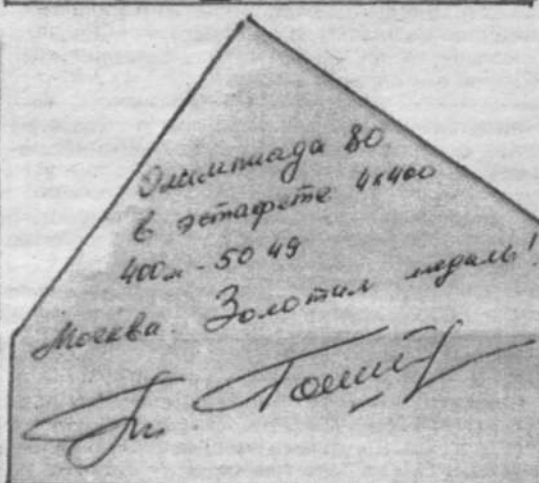 Олимпиада 80.
в эстафете 4х400
400м - 50 49
Москва. Золотая медаль!